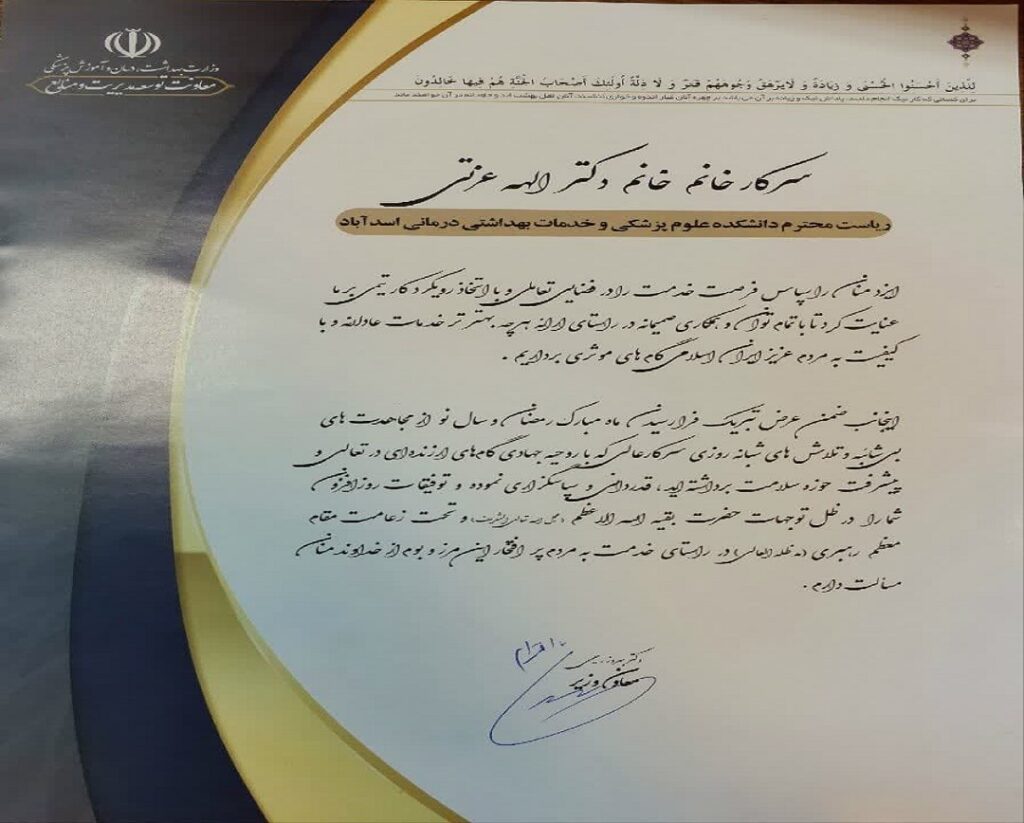 وزارت بهداشت، درمان و آموزش پزشکی
معاونت توسعه مدیریت و منابع
لِلَّذِینَ أَحْسَنُوا الْحُسْنَى وَ زِیَادَةٌ وَ لَا یَرْهَقُ وُجُوهَهُمْ قَتَرٌ وَ لَا ذِلَّةٌ أُولَئِكَ أَصْحَابُ الْجَنَّةِ هُمْ فِیهَا خَالِدُونَ
برای کسانی که کار نیک انجام دادند، پاداش نیک و زیاده بر آن می باشد بر چهره آنان غبار اندوه و خواری ننشیند، آنان اهل بهشت اند و جاودانه در آن خواهند ماند
سرکار خانم خانم دکتر الهه عزتی
ریاست محترم دانشکده علوم پزشکی و خدمات بهداشتی درمانی اسدآباد
ایزد منان را سپاس فرصت خدمت را در فضایی تعاملی و با اتخاذ رویکرد کار تیمی بر ما
عنایت کرد تا با تمام توان و همکاری صمیمانه در راستای ارائه هرچه بهتر تر خدمات عادلانه و با
کیفیت به مردم عزیز ایران اسلامی گام های موثری برداریم .
اینجانب ضمن عرض تبریک فرارسیدن ماه مبارک رمضان و سال نو از مجاهدت های
بی شائبه و تلاش های شبانه روزی سرکارعالی که با روحیه جهادی گام های ارزنده ای در تعالی و
پیشرفت حوزه سلامت برداشته اید ، قدردانی و سپاسگزاری نموده و توفیقات روزافزون
شما را در ظل توجهات حضرت بقیه الله الاعظم (عجل الله تعالی الشریف) و تحت زعامت مقام
معظم رهبری (مد ظله العالی) در راستای خدمت به مردم پر افتخار این مرز و بوم از خداوند منان
مسالت دارم .
با احترام
دکتر بهروز رحیمی
معاون وزیر